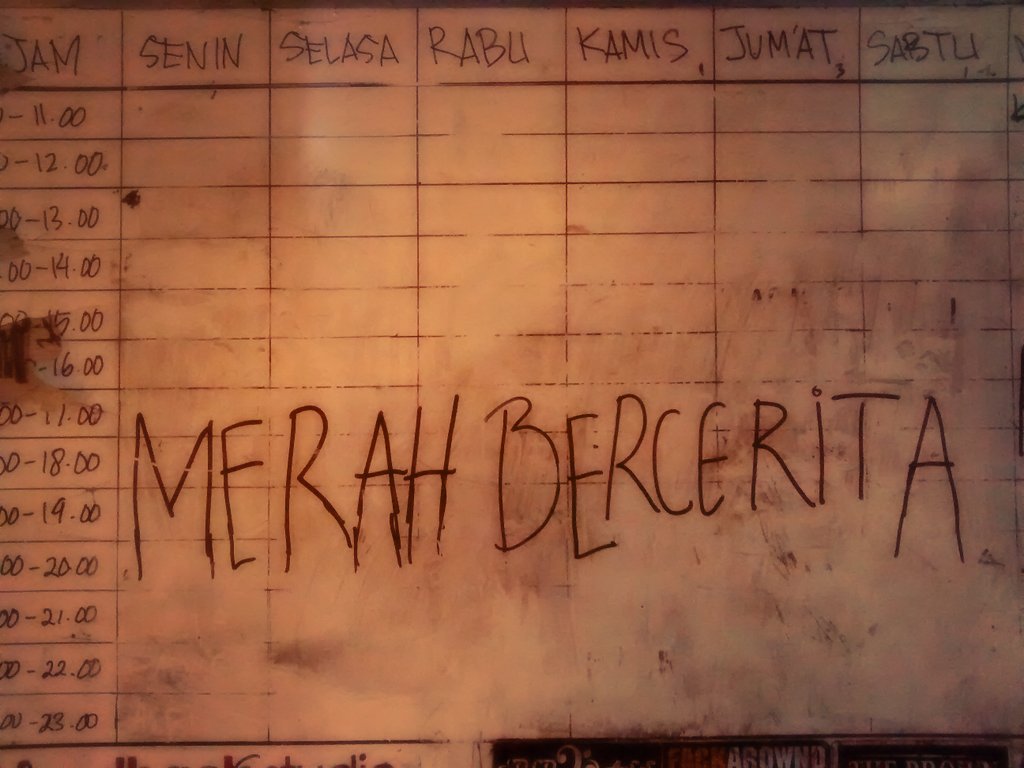 JAM SENIN SELASA RABU KAMIS JUM'AT SABTU
- 11.00
- 12.00
00-13.00
.00-14.00
00-15.00
-16.00
00-17.00
00-18.00
00-19.00
00-20.00
00-21.00
00-22.00
00-23.00
MERAH BERCERITA
studio